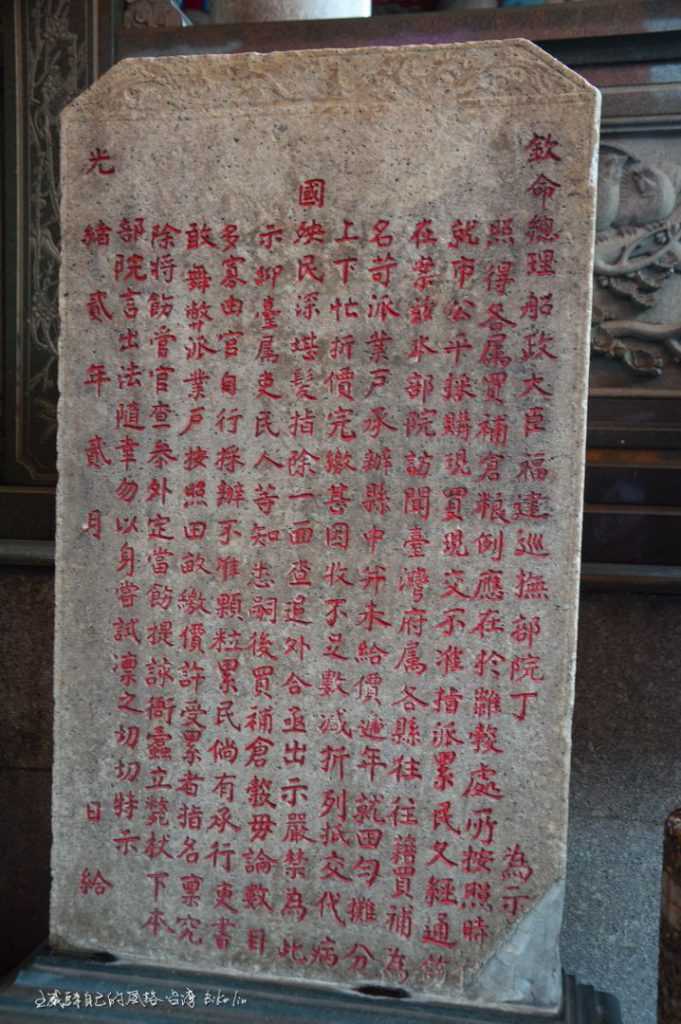 欽命總理船政大臣福建巡撫部院丁 為示
照得各属買補倉粮例應在於雝穀處所按照時
就市公平採購現買現交不准指派累民久經通飭
在案茲本部院訪聞臺灣府属各縣往往藉買補為
名苛派業戶承辦縣中并未給價遞年就田勻攤分
上下忙折價完繳甚因收不足數減折列抵交代病
國
殃民深堪髮指除一面查追外合亟出示嚴禁為此
示仰臺属吏民人等知悉嗣後買補倉穀毋論數目
多寡由官自行採辦不准顆粒累民倘有承行吏書
敢舞弊派業戶按照田畝繳價許受累者指名禀究
除將飭當官查參外定當飭提該衙蠹立斃杖下本
部院言出法隨幸勿以身嘗試凛之切切特示
光緒貳年貳月 日給
自己的風格 台湾